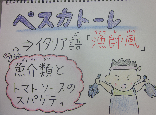 ペスカトーレ
→イタリア語「漁師風」
魚介類と
トマトソースの
スパゲティ